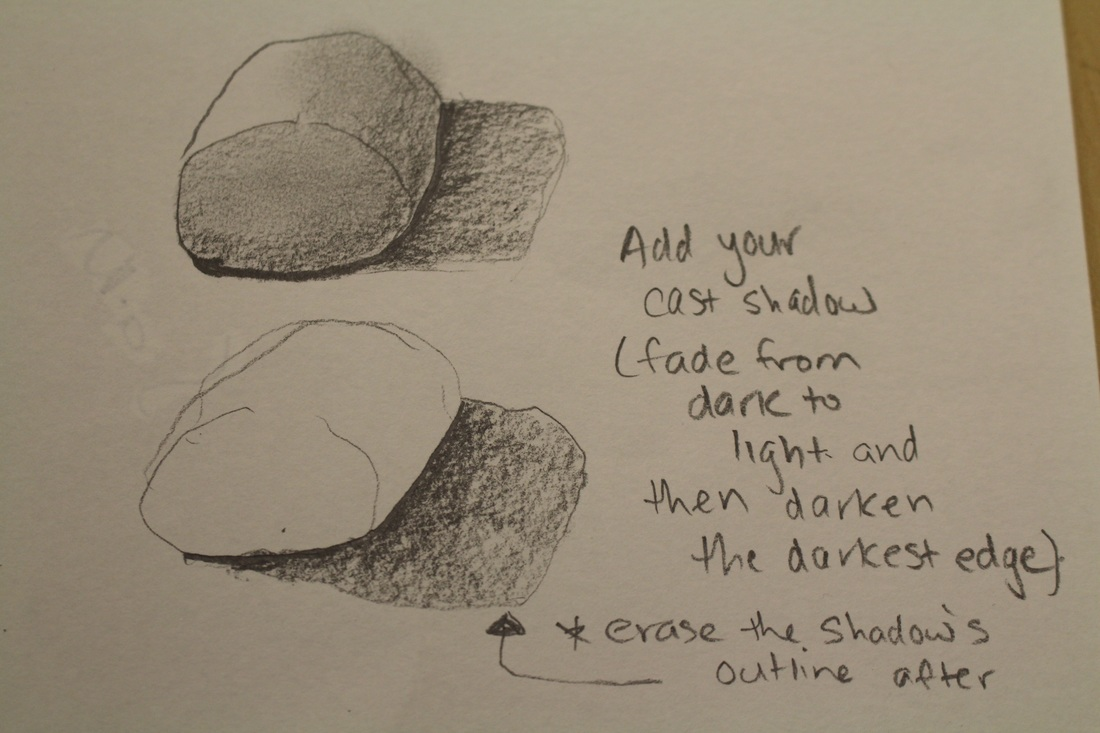 Add your
cast shadow
(fade from
dark to
light and
then darken
the darkest edge)
* erase the shadow's
outline after